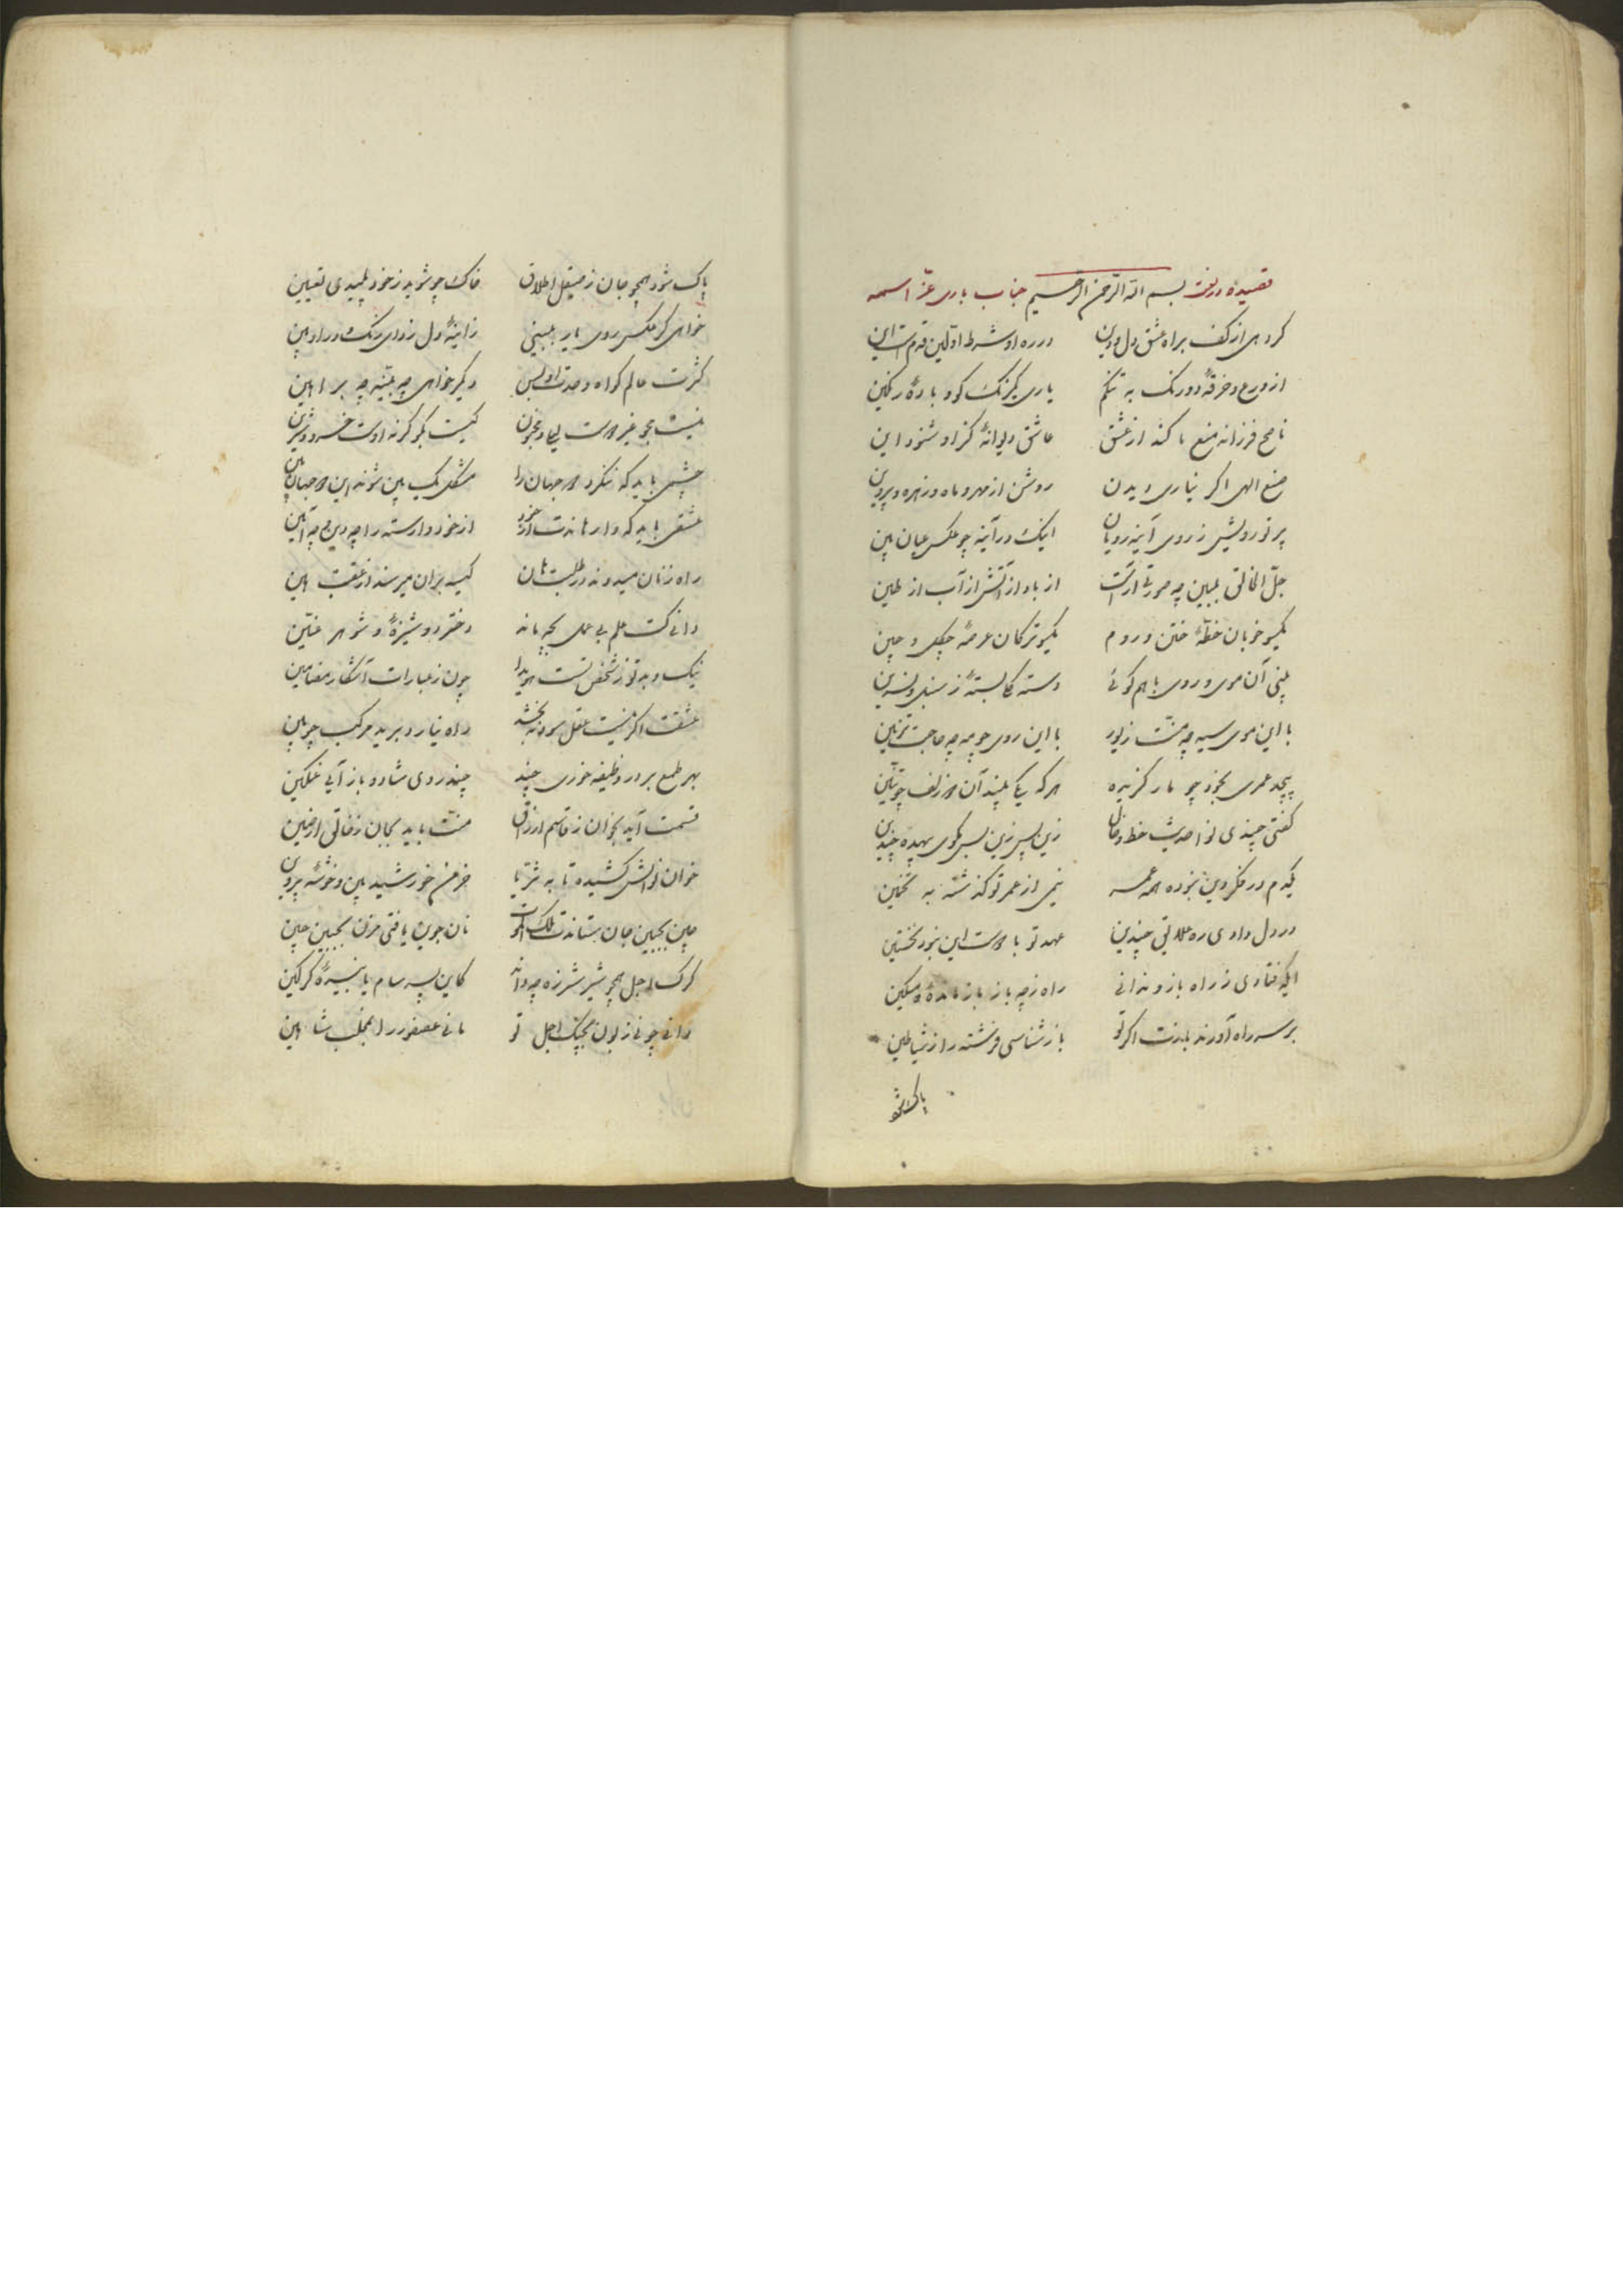 قصیده در نعت بسم الله الرحمن الرحیم جناب باری عز اسمه
کر دهی از کف براه عشق دل و دین در ره او شرط اولین قدمست این
از ورع و خرقهٔ دورنک به تنکم یاری یکرنک کو و بادهٔ رنکین
ناصح فرزانه منع ما کند از عشق عاشق دیوانهٔ کزو شنود این
صنع الهی اکر نیاری دیدن روشن از مهر و ماه و زهره و پروین
پرتو رویش ز روی آینه رویان اینک در آینه چو عکس عیان بین
جل الخالق ببین چه صورتی آراست از باد از آتش از آب از طین
یکسو خوبان خطهٔ ختن و روم یکسو ترکان عرصهٔ چکل و چین
بینی آن موی و روی باهم کوئی دستهٔ کل بستهٔ ز سنبل و نسرین
با این موی سیه چه منت زیور با این روی چو مه چه حاجت تزیین
پیچد عمری بخود چو مار کزیده هر که یکی بیند آن دو زلف چو تنین
کفتی چندی نوا حدیث خط و خال زین پس زین پس مکوی بیهده چندین
یکدم در فکر دین نبوده همه عمر نیمی از عمر تو کذشته به تخمین
در دل دادی ره علایق چندین عهد تو با دوست این نبود نخستین
ایکه فتادی ز راه باز و ندانی راه ز چه باز باز ماندهٔ مسکین
بر سر راه آورند بازت اکر تو باز شناسی فرشته را ز شیاطین
پاک شو
پاک شود همچو جان ز صیقل اطلاق خاک چو شوید ز خود پلیدی تعیین
خواهی کر عکس روی یار ببینی ز اینهٔ دل زدای زنک و در او بین
کثرت عالم کواه وحدت او بس دیکر خواهی چه بینه چه براهین
نیست بجو غیر دوست لیلی و مجنون کیست بکو کر نه اوست خسرو و شیرین
چشمی باید که ننکرد دو جهان را مشکل یک بین شوند این دو جهان بین
عشقی باید که وارهاندت از خود از خود وارسته را چه دین و چه آئین
راه زنان میدوند در طلبت هان کیسه بران میرسند از عقبت هین
دانی کت علم بی عمل بچه ماند دختر دوشیزهٔ و شوهر عنین
نیک و بد تو ز شخص تست هویدا چون ز عبارات آشکار مضامین
عشقت اکر نیست عقل سود نبخشد راه نیارد برید مرکب چوبین
بهر طمع بر در وظیفه خوری چند چند روی شاد و باز آیی غمکین
قسمت آید بخوان ز قاسم ارزاق منت باید بجان ز خالق ارضین
خوان نوالش کشیده تا به ثریا خرمن خورشید بین و خوشهٔ پروین
چین بجبین جان ستاندت ملک الموت نان جوین یافتی مزن بجبین چین
کرک اجل همچو شیر شرزه چه داند کاین پسر سام یا نبیرهٔ کرکین
دانی چونی زبون بچنک اجل تو مانی عصفور را بمخلب شاهین